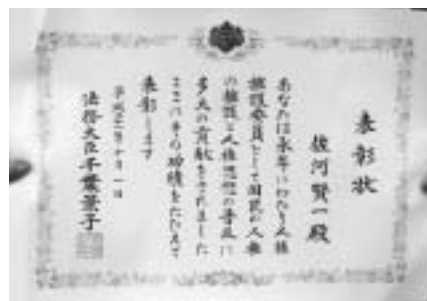 表彰状
河賢一殿
あなたは永年にわたり人権
擁護委員として国民の人権
の擁護と人権思想の普及に
多大の貢献をされました
ここにその功績をたたえて
表彰します
平成
法務大臣千葉景子